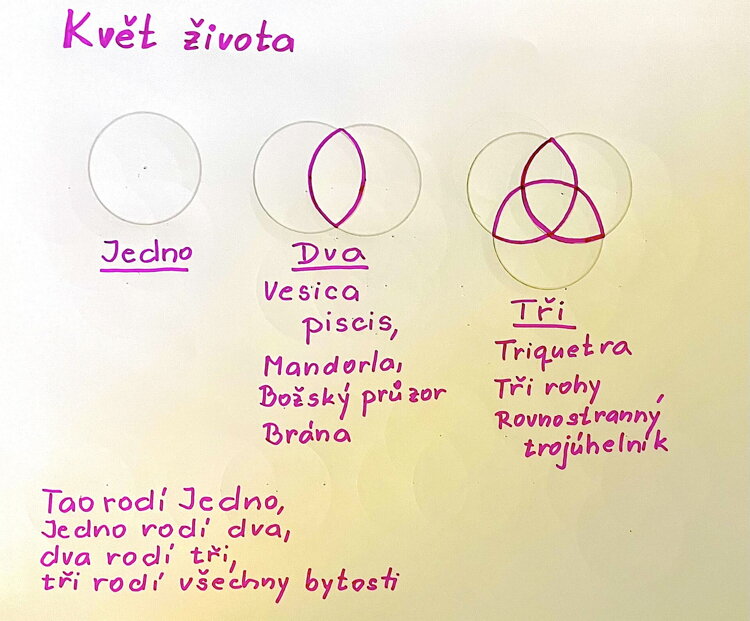 Květ života
Jedno
Dva
Vesica
piscis,
Mandorla,
Božský průzor
Brána
Tři
Triquetra
Tři rohy
Rovnostranný
trojúhelník
Tao rodí Jedno,
Jedno rodí dva,
dva rodí tři,
tři rodí všechny bytosti